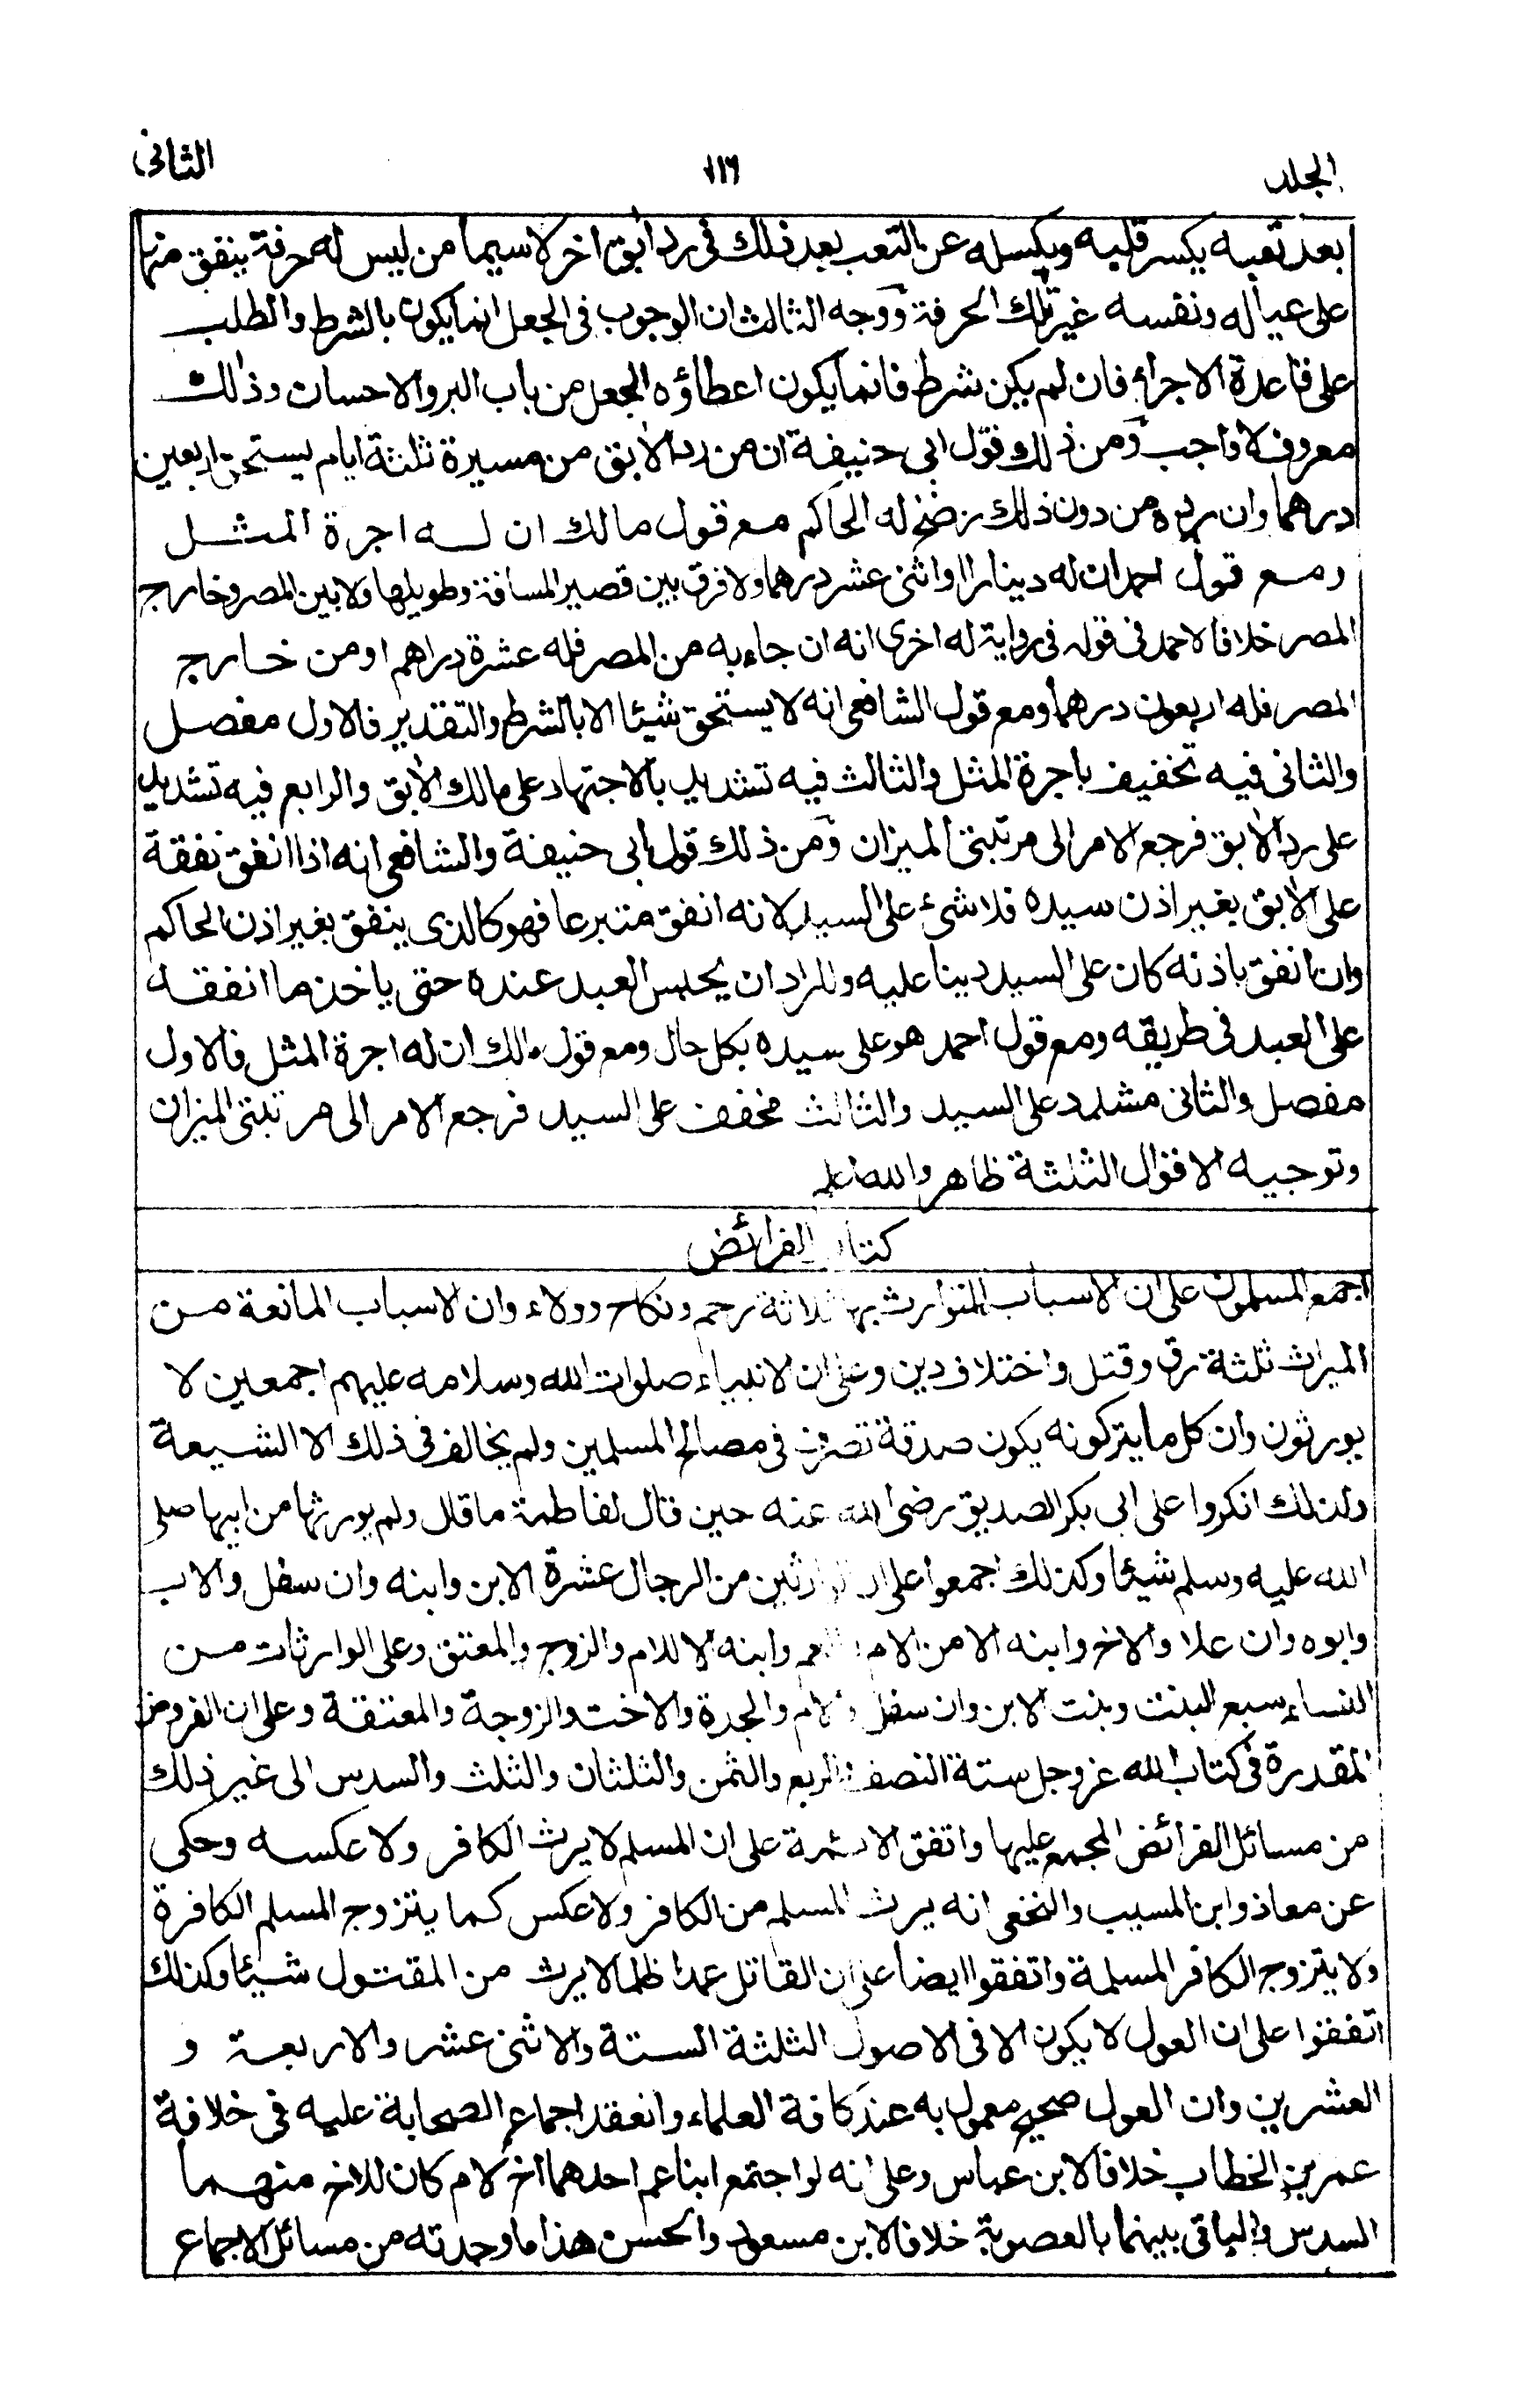 الجلد ١١٦ الثانى
بعد تعبه يكسر قلبه ويكسله عن التعب بعد ذلك فى رد ابق اخر لاسيما من ليس له حرفة ينفق منها
على عياله ونفسه غير تلك الحرفة ووجه الثالث ان الوجوب فى الجعل انما يكون بالشرط والطلب
على قاعدة الاجراء فان لم يكن شرط فانما يكون اعطاؤه الجعل من باب البر والاحسان وذلك
معروف لا واجب ومن ذلك قول ابى حنيفة ان من رد الابق من مسيرة ثلثة ايام يستحق اربعين
درهما وان رده من دون ذلك يرضخ له الحاكم مع قول مالك ان له اجرة المثل
ومع قول احمد ان له دينارا او اثنى عشر درهما ولا فرق بين قصير المسافة وطويلها ولا بين المصر وخارج
المصر خلافا لاحمد فى قوله فى رواية له اخرى انه ان جاء به من المصر فله عشرة دراهم او من خارج
المصر فله اربعون درهما ومع قول الشافعى انه لا يستحق شيئا الا بالشرط والتقدير فالاول مفصل
والثانى فيه تخفيف باجرة المثل والثالث فيه تشديد بالاجتهاد على مالك الابق والرابع فيه تشديد
على رد الابق فرجع الامر الى مرتبتى الميزان ومن ذلك قول ابى حنيفة والشافعى انه اذا انفق نفقة
على الابق بغير اذن سيده فلا شئ على السيد لانه انفق متبرعا فهو كالذى ينفق بغير اذن الحاكم
وان انفق باذنه كان على السيد دينا عليه والمراد ان يحبس العبد عنده حتى ياخذ ما انفقه
على العبد فى طريقه ومع قول احمد هو على سيده بكل حال ومع قول مالك ان له اجرة المثل فالاول
مفصل والثانى مشدد على السيد والثالث مخفف على السيد فرجع الامر الى مرتبتى الميزان
وتوجيه الاقوال الثلثة ظاهر والله اعلم
كتاب الفرائض
اجمع المسلمون على ان الاسباب المتوارث بها ثلاثة رحم ونكاح وولاء وان الاسباب المانعة من
الميراث ثلثة رق وقتل واختلاف دين وعلى ان الانبياء صلوات الله وسلامه عليهم اجمعين لا
يورثون وان كل ما يتركونه يكون صدقة تصرف فى مصالح المسلمين ولم يخالف فى ذلك الا الشيعة
ولذلك انكروا على ابى بكر الصديق رضى الله عنه حين قال لفاطمة ما قال ولم يورثها من ابيها صلى
الله عليه وسلم شيئا وكذلك اجمعوا على ان الوارثين من الرجال عشرة الابن وابنه وان سفل والاب
وابوه وان علا والاخ وابنه الا من الام والعم وابنه الا للام والزوج والمعتق وعلى الوارثات من
النساء سبع البنت وبنت الابن وان سفل والام والجدة والاخت والزوجة والمعتقة وعلى ان الفروض
المقدرة فى كتاب الله عز وجل ستة النصف والربع والثمن والثلثان والثلث والسدس الى غير ذلك
من مسائل الفرائض المجمع عليها واتفق الائمة على ان المسلم لا يرث الكافر ولا عكسه وحكى
عن معاذ وابن المسيب والنخعى انه يرث المسلم من الكافر ولا عكس كما يتزوج المسلم الكافرة
ولا يتزوج الكافر المسلمة واتفقوا ايضا على ان القاتل عمدا ظلما لا يرث من المقتول شيئا وكذلك
اتفقوا على ان العول لا يكون الا فى الاصول الثلثة الستة والاثنى عشر والاربعة و
العشرين وان العول صحيح معمول به عند كافة العلماء وانعقد اجماع الصحابة عليه فى خلافة
عمر بن الخطاب خلافا لابن عباس وعلى انه لو اجتمع ابنا عم احدهما اخ لام كان للاخ منهما
السدس والباقى بينهما بالعصوبة خلافا لابن مسعود والحسن هذا ما وجدته من مسائل الاجماع